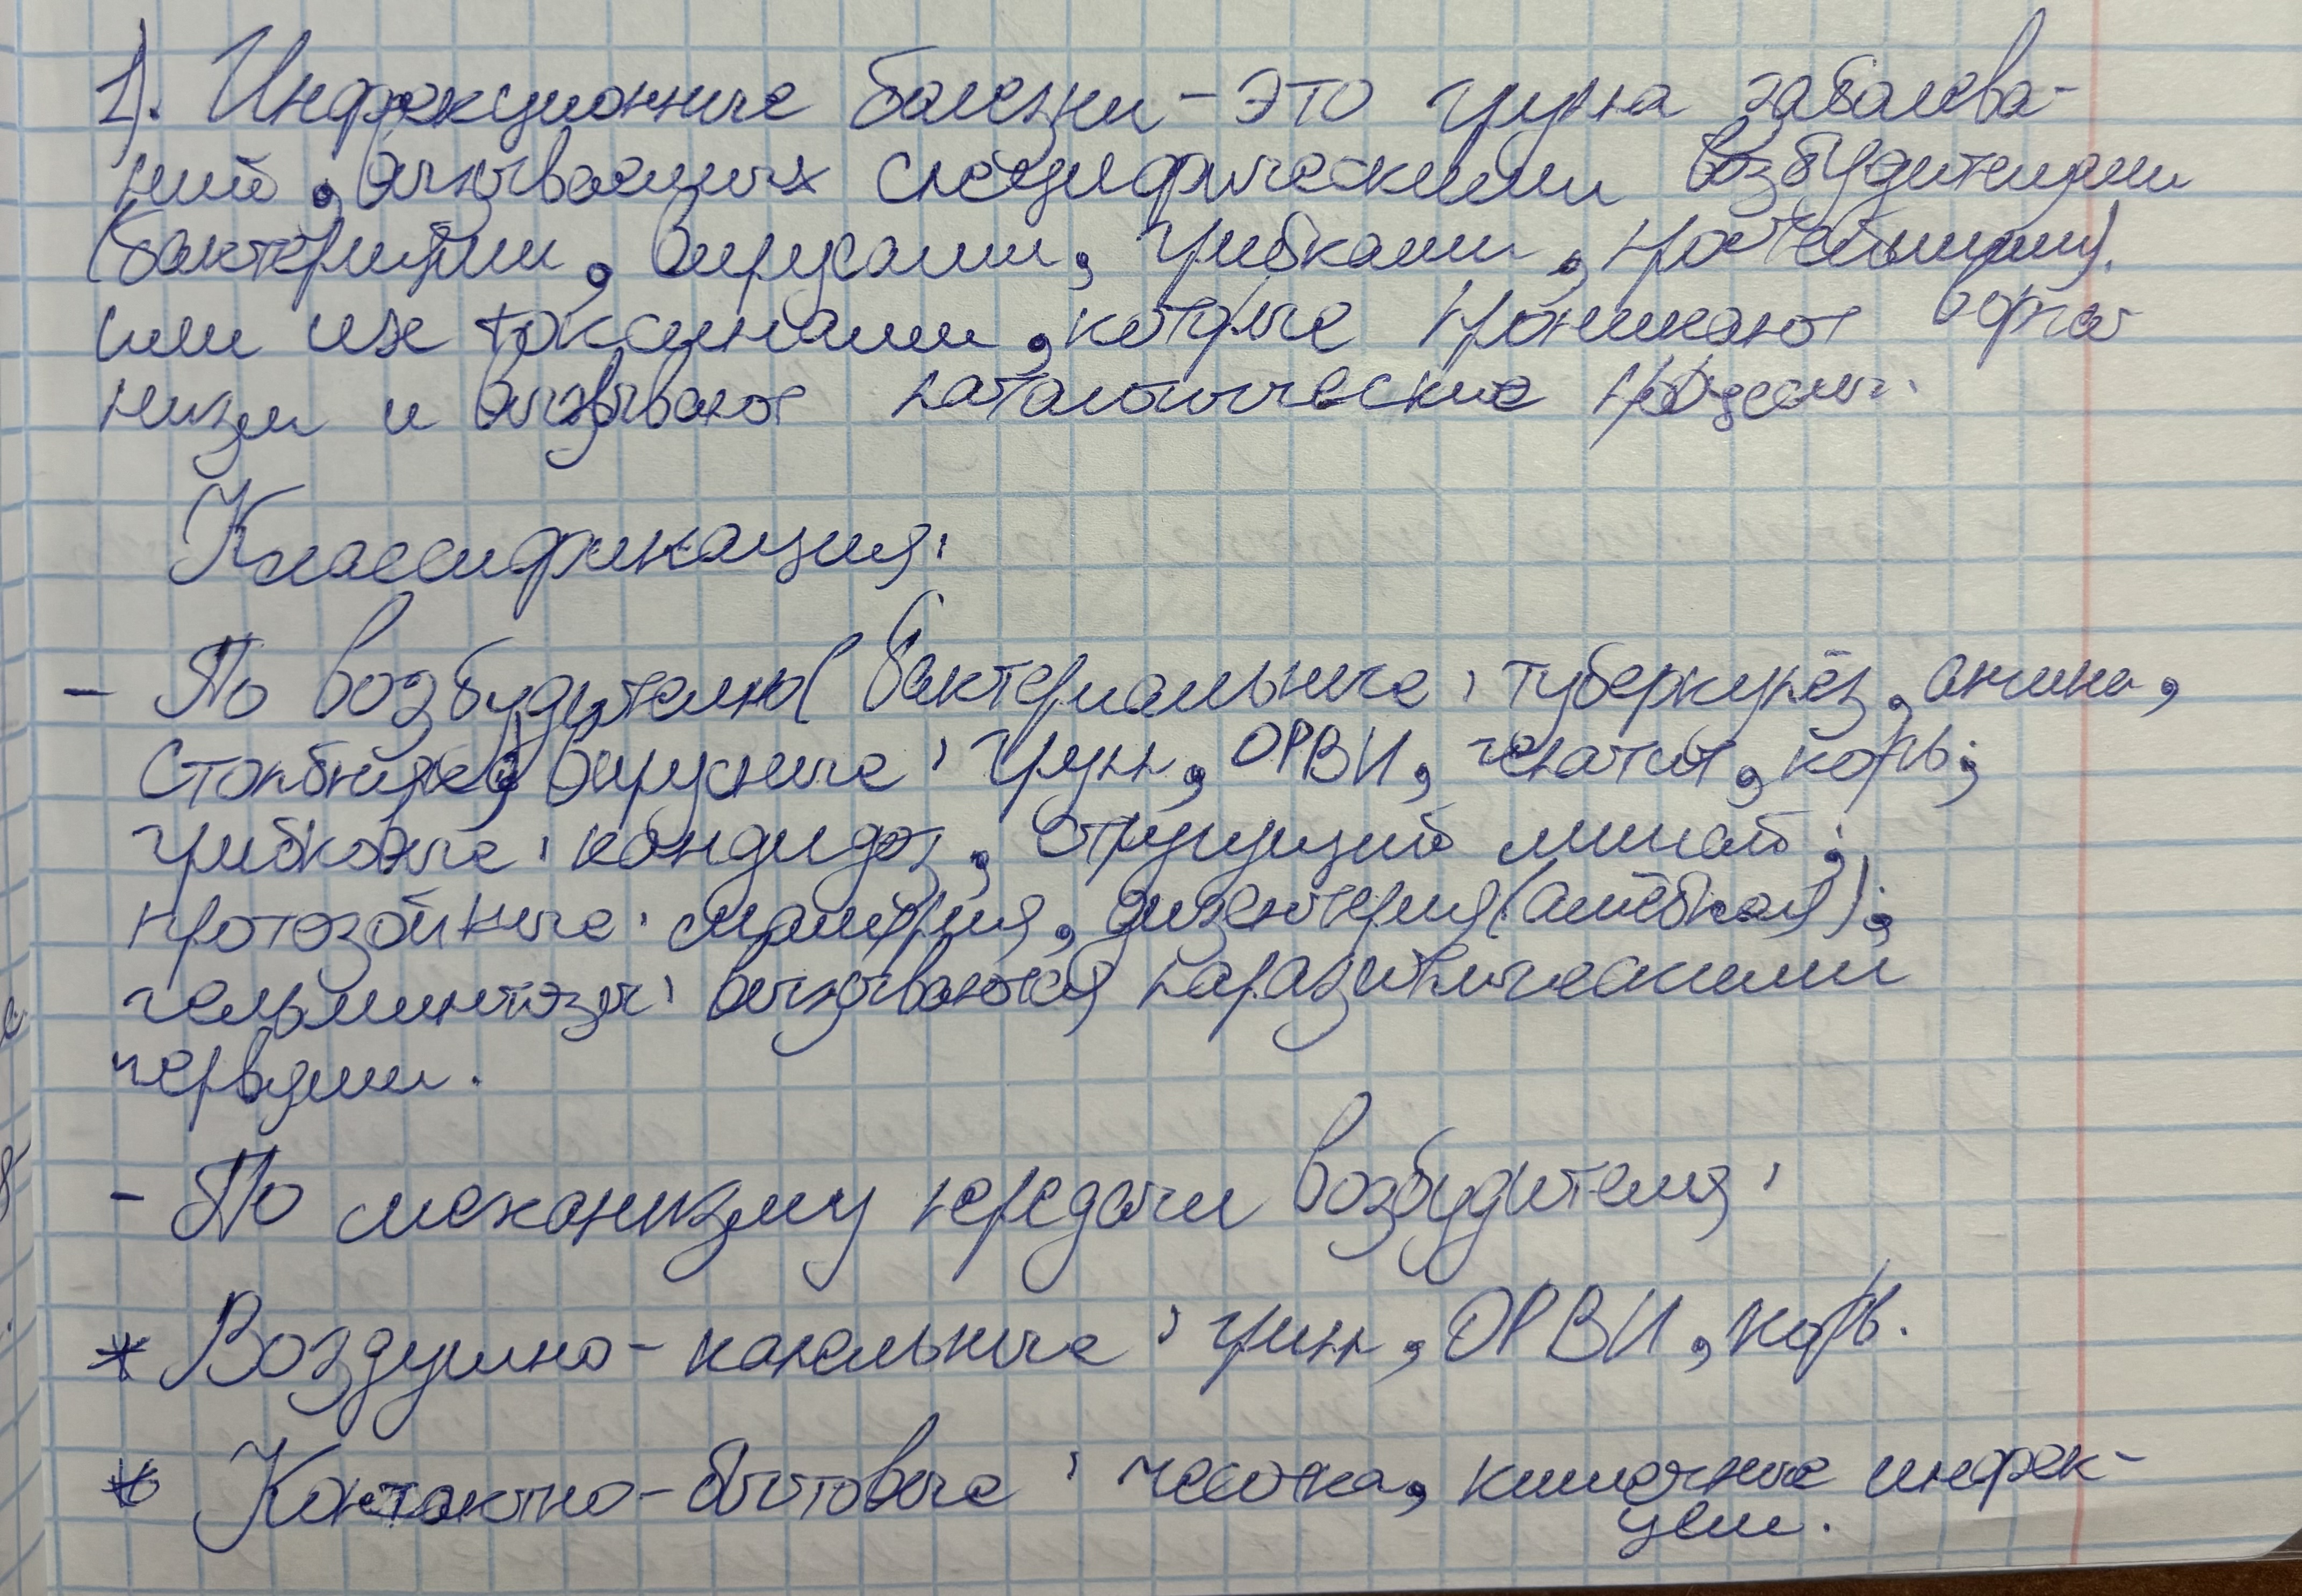 1). Инфекционные болезни - это группа заболева-
ний, вызываемых специфическими возбудителями
(бактериями, вирусами, грибками, простейшими),
или их токсинами, которые проникают в орга
низм и вызывают патологические процессы.
Классификация:
- По возбудителю (бактериальные: туберкулёз, ангина,
столбняк; вирусные: грипп, ОРВИ, гепатит, корь;
грибковые: кандидоз, стригущий лишай;
протозойные: малярия, дизентерия (амёбная);
гельминтозы: вызываются паразитическими
червями.
- По механизму передачи возбудителя:
* Воздушно-капельные: грипп, ОРВИ, корь.
* Контактно-бытовые: чесотка, кишечные инфек-
ции.